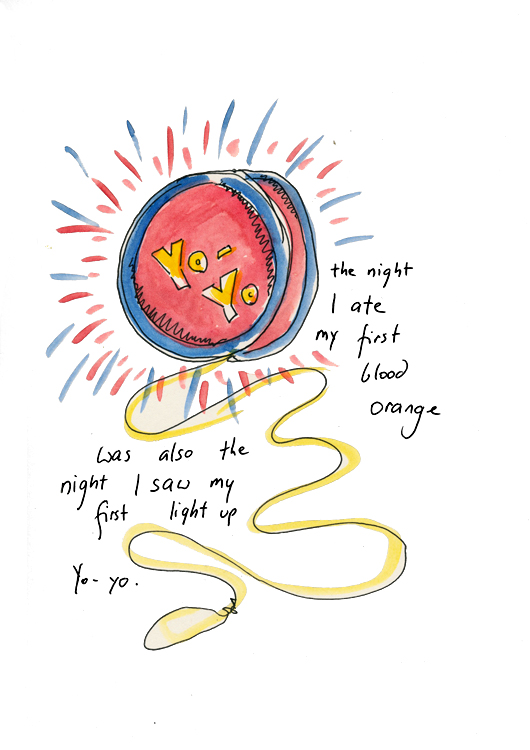 Yo-
Yo
the night
I ate
my first
blood
orange
was also the
night I saw my
first light up
Yo-yo.